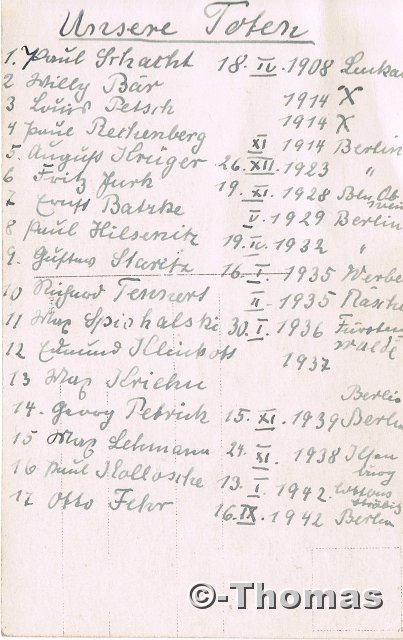 Unsere Toten
1. Paul Schacht 18. IV. 1908 Luckau
2 Willy Bär 1914 X
3 Louis Petsch 1914 X
4 Paul Rechenberg XI 1914 Berlin
5. August Krüger 26. XII. 1923 "
6 Fritz Jurk 19. XI. 1928 Bln.
7 Ernst Batzke V. 1929 Berlin
8 Paul Hilsenitz 19. II. 1932 "
9. Gustav Staritz 16. I. 1935 Werbe
10 Richard Tennert II - 1935
11 Max Spichalski 30. I. 1936 Fürsten
walde
12 Edmund Klinkott 1937
13 Max Kriehn Berlin
14. Georg Petrick 15. XI. 1939 Berlin
15 Max Lehmann 24. XI. 1938 Ilsen
burg
16 Paul Kollosche 13. I. 1942.
17 Otto Fehr 16. IX. 1942 Berlin
©-Thomas